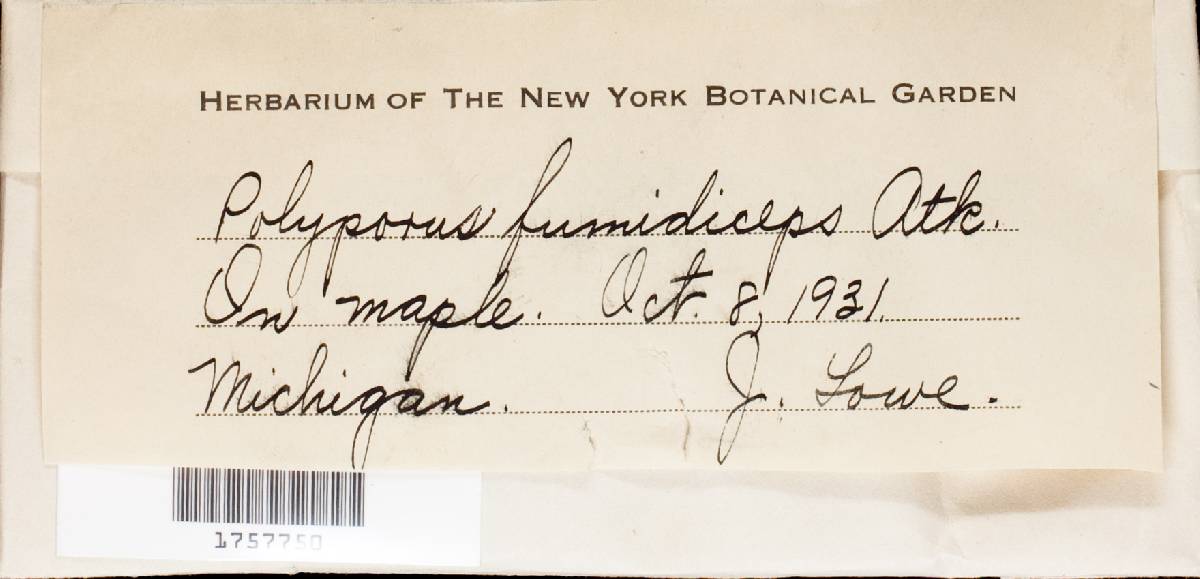 HERBARIUM OF THE NEW YORK BOTANICAL GARDEN
Polyporus fumidiceps Atk.
On maple. Oct. 8, 1931.
Michigan. J. Lowe.
1757750